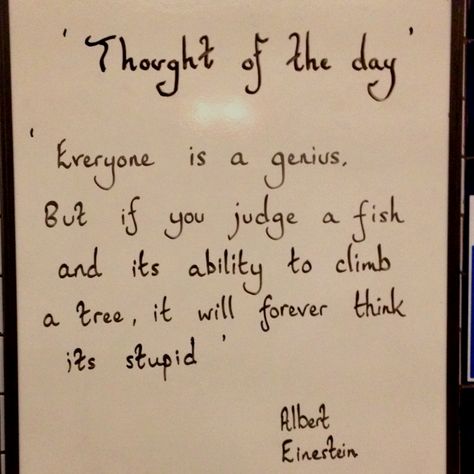 ' Thought of the day '
' Everyone is a genius.
But if you judge a fish
and its ability to climb
a tree, it will forever think
its stupid '
Albert
Einestein